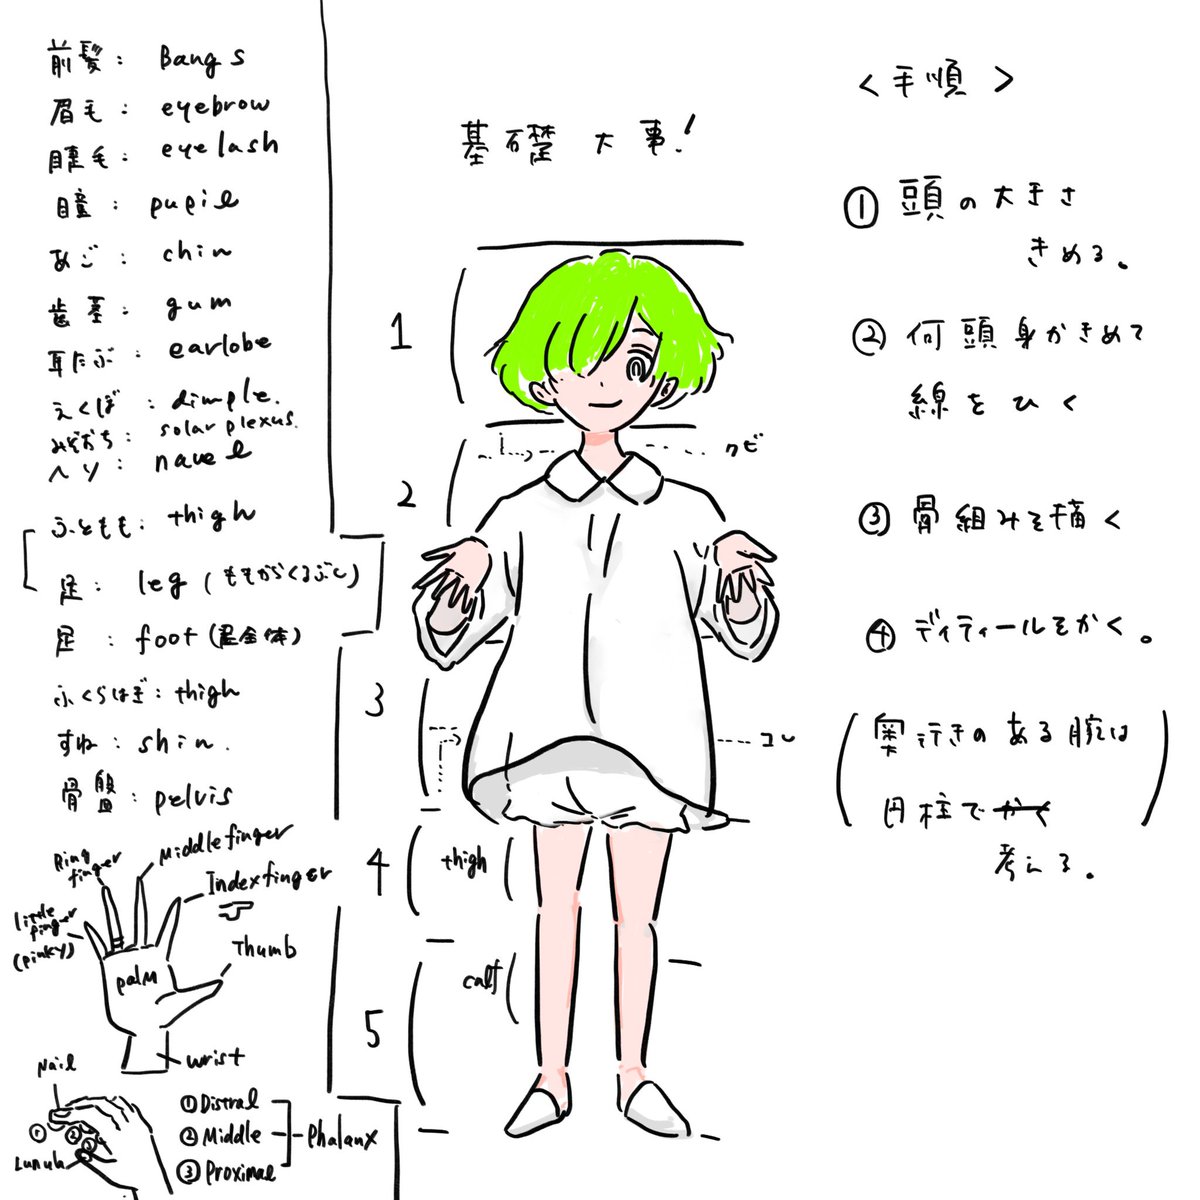 前髪: Bangs
眉毛: eyebrow
睫毛: eyelash
瞳: pupil
あご: chin
歯茎: gum
耳たぶ: earlobe
えくぼ: dimple.
みぞおち: solar plexus.
ヘソ: navel
ふともも: thigh
足: leg (ももからくるぶし)
足: foot (足全体)
ふくらはぎ: thigh
すね: shin.
骨盤: pelvis
Ring finger
Middle finger
Index finger
little finger (pinky)
Thumb
palm
wrist
Nail
① ② ③
Lunula
①Distral
②Middle
③Proximal
Phalanx
基礎大事!
1
2
3
4
5
クビ
コシ
thigh
calf
<手順>
①頭の大きさ
きめる。
②何頭身かきめて
線をひく
③骨組みを描く
④ディティールをかく。
(奥行きのある腕は
円柱でかく
考える。)